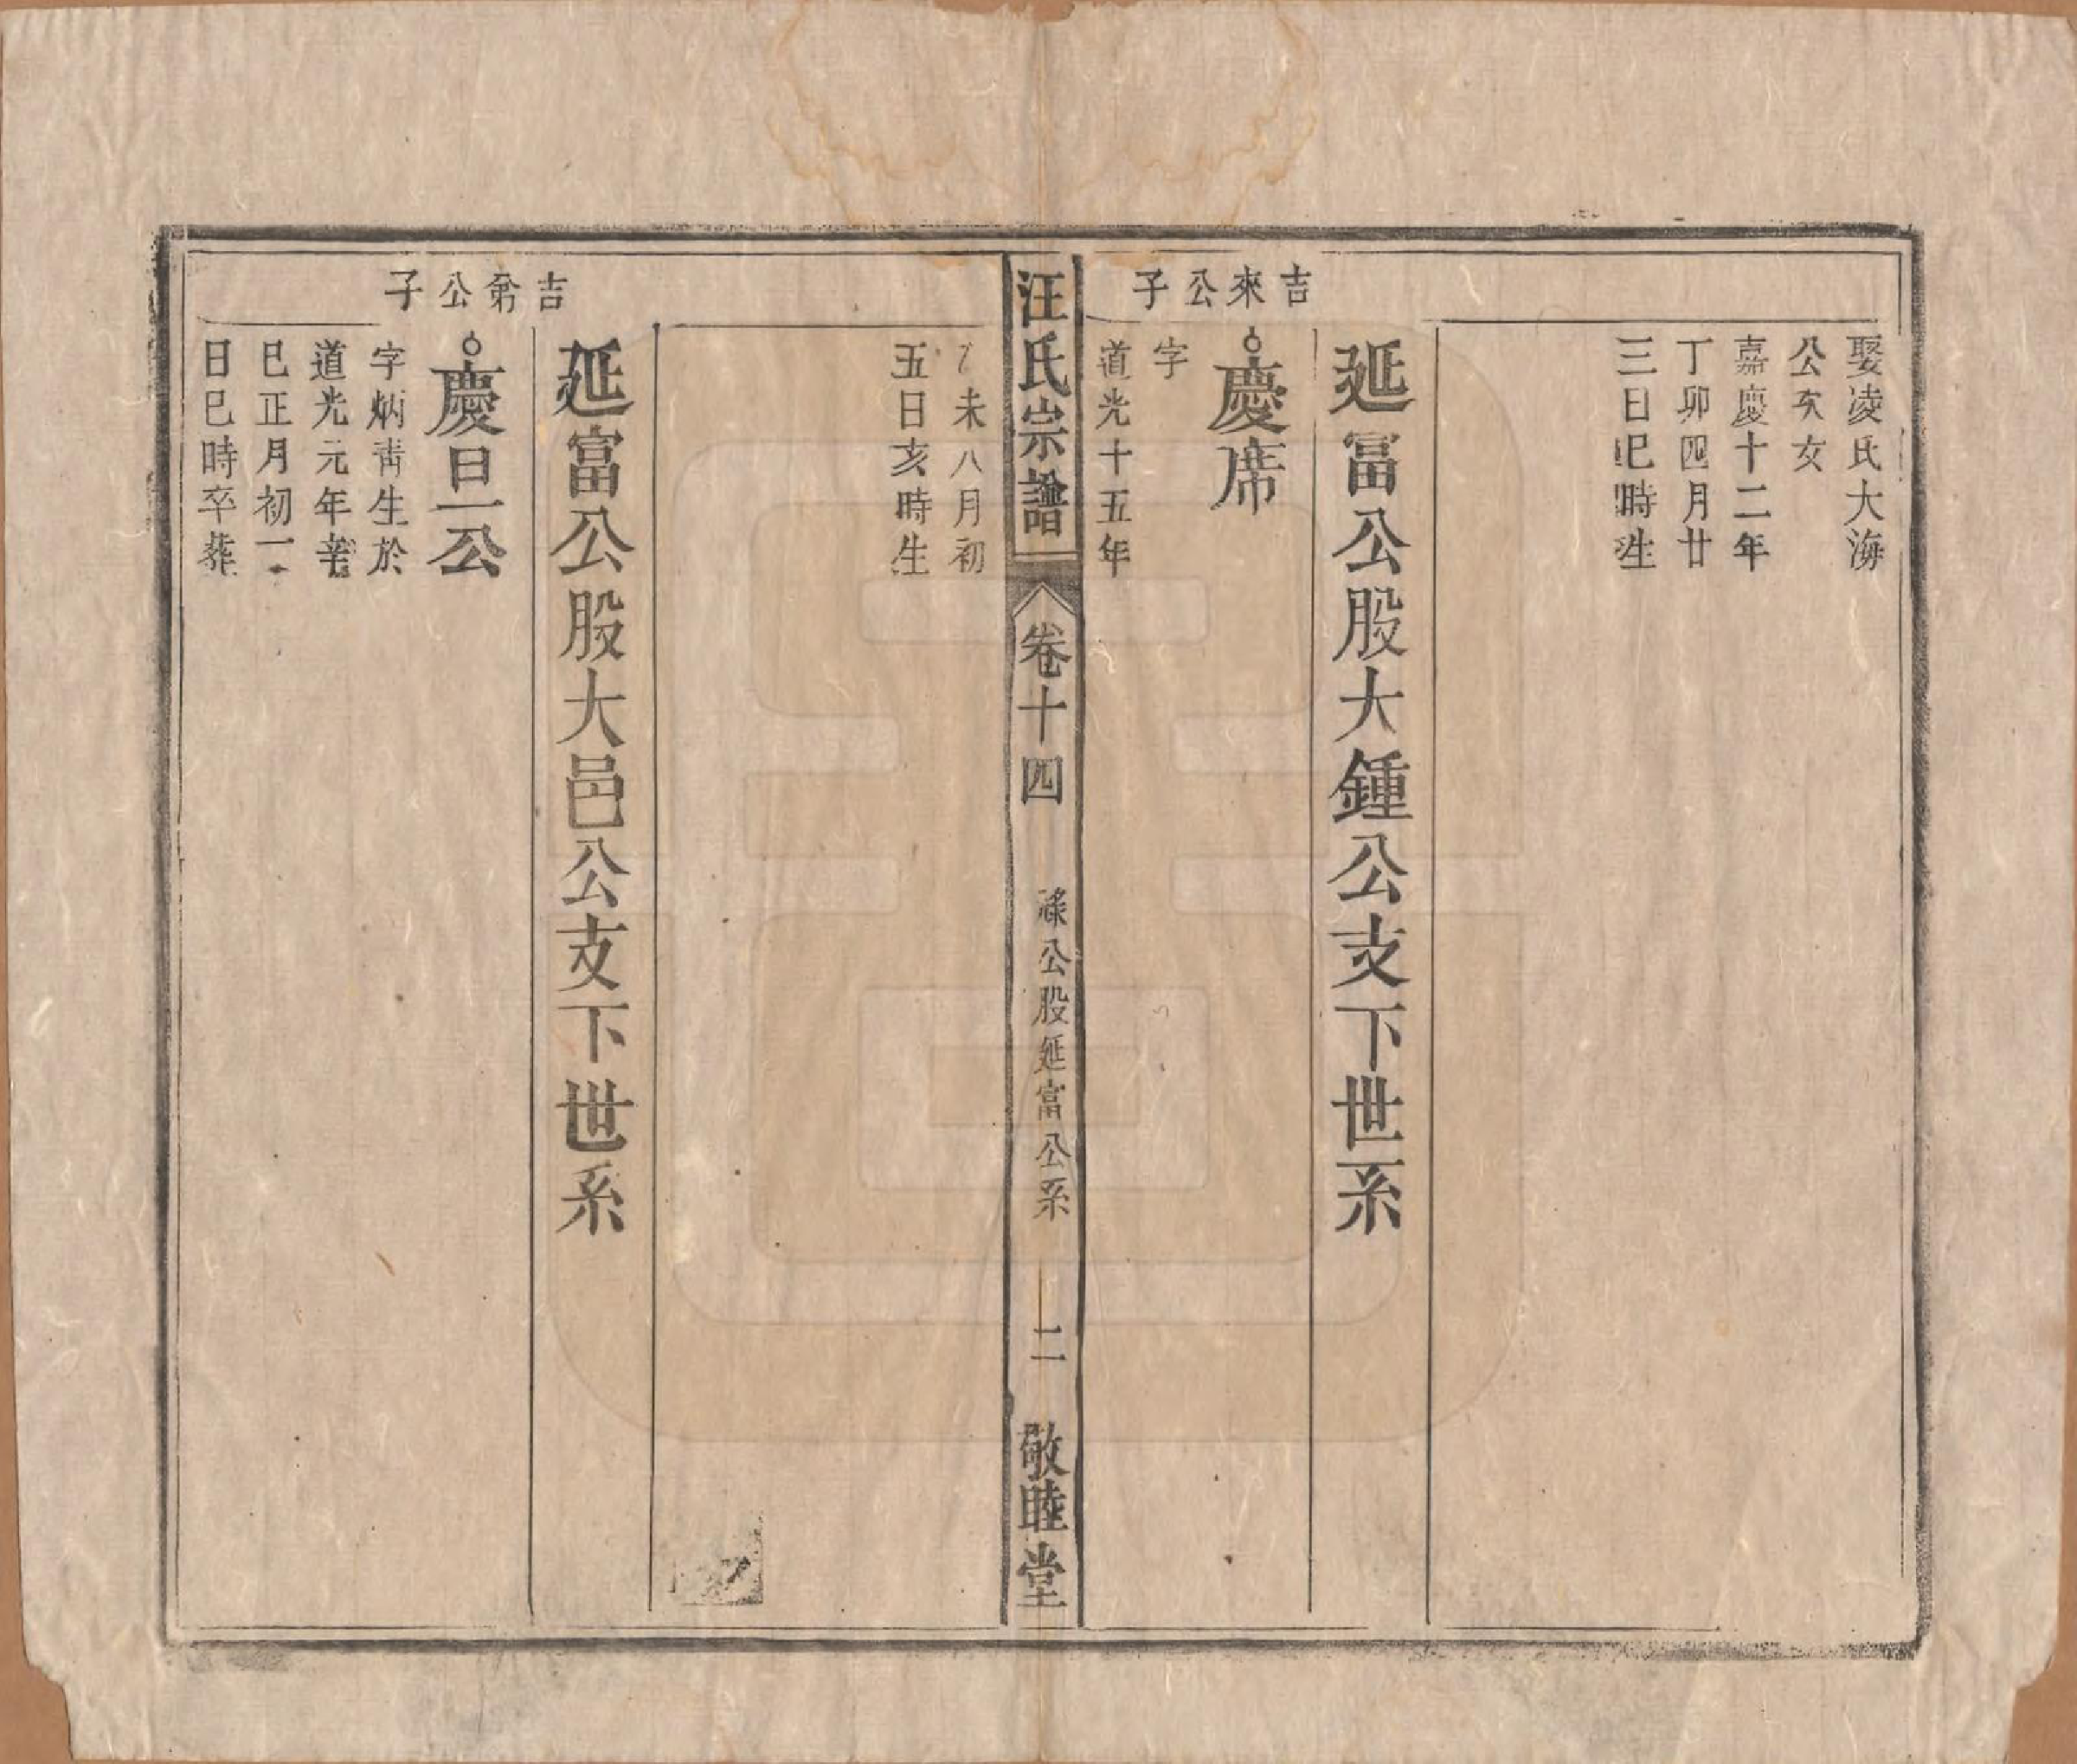 娶凌氏大海
公次女
嘉慶十二年
丁卯四月廿
三日巳時生
延富公股大鍾公支下世系
吉來公子
慶席
字
道光十五年
汪氏宗譜
卷十四
祿公股延富公系
二
敬睦堂
乙未八月初
五日亥時生
延富公股大邑公支下世系
吉爺公子
慶旦公
字炳青生於
道光元年辛
巳正月初一
日巳時卒葬